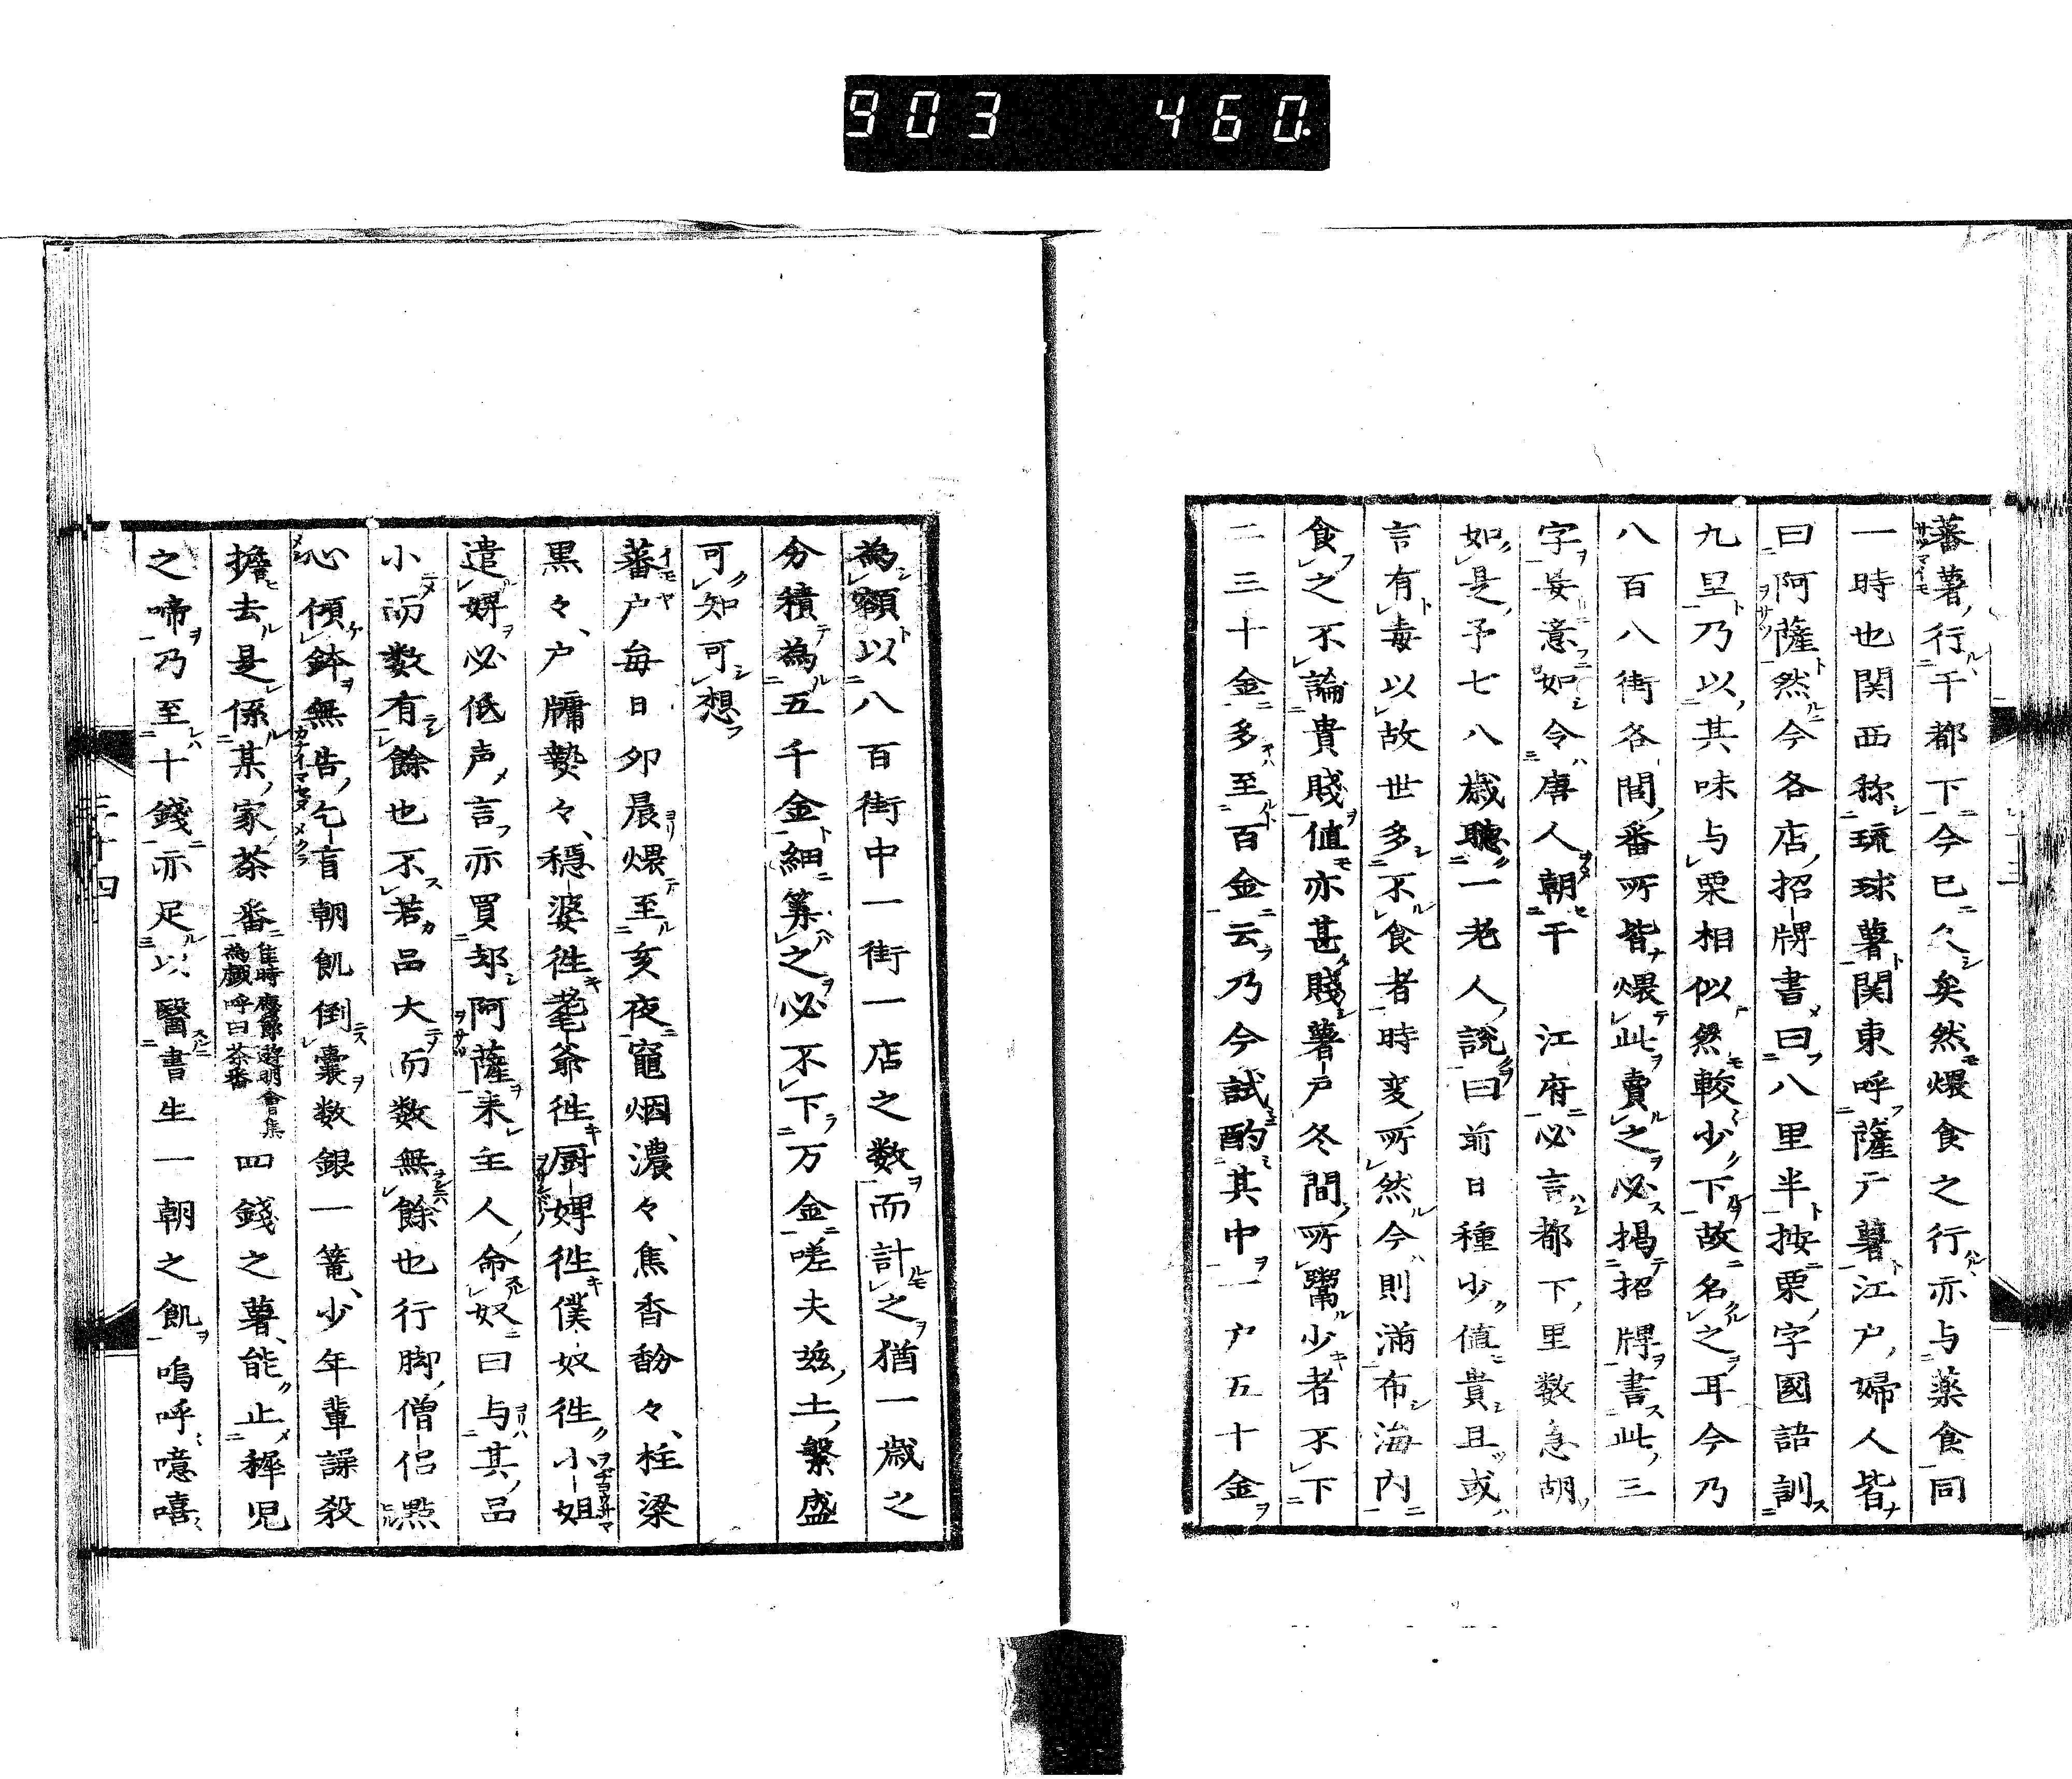 903 460.
蕃薯行于都下今已久矣然煨食之行亦与薬食同
一時也関西称琉球薯関東呼薩广薯江户婦人皆
曰阿薩然今各店招牌書曰八里半按栗字國語訓
九里乃以其味与栗相似然較少下故名之耳今乃
八百八街各閭番所皆煨此賣之必掲招牌書此三
字妄意如令唐人朝于 江府必言都下里数急胡
如是予七八歳聴一老人説曰前日種少値貴且或
言有毒以故世多不食者時変所然今則満布海内
食之不論貴賤値亦甚賤薯户冬間所鬻少者不下
二三十金多至百金云乃今試酌其中一户五十金
為額以八百街中一街一店之数而計之猶一歳之
分積為五千金細筭之必不下万金嗟夫玆土繁盛
可知可想
蕃户毎日夘晨煨至亥夜竈烟濃々焦香馚々柱梁
黒々户牗爇々穏婆徃耄爺徃厨婢徃僕奴徃小姐
遣婢必低声言亦買却阿薩来主人命奴曰与其品
小而数有餘也不若品大而数無餘也行脚僧侶點
心傾鉢無告乞盲朝飢倒嚢数銀一篭少年輩譟殺
擔去是係某家茶番 四銭之薯能止穉児
之啼乃至十錢亦足以醫書生一朝之飢嗚呼噫嘻
三十四